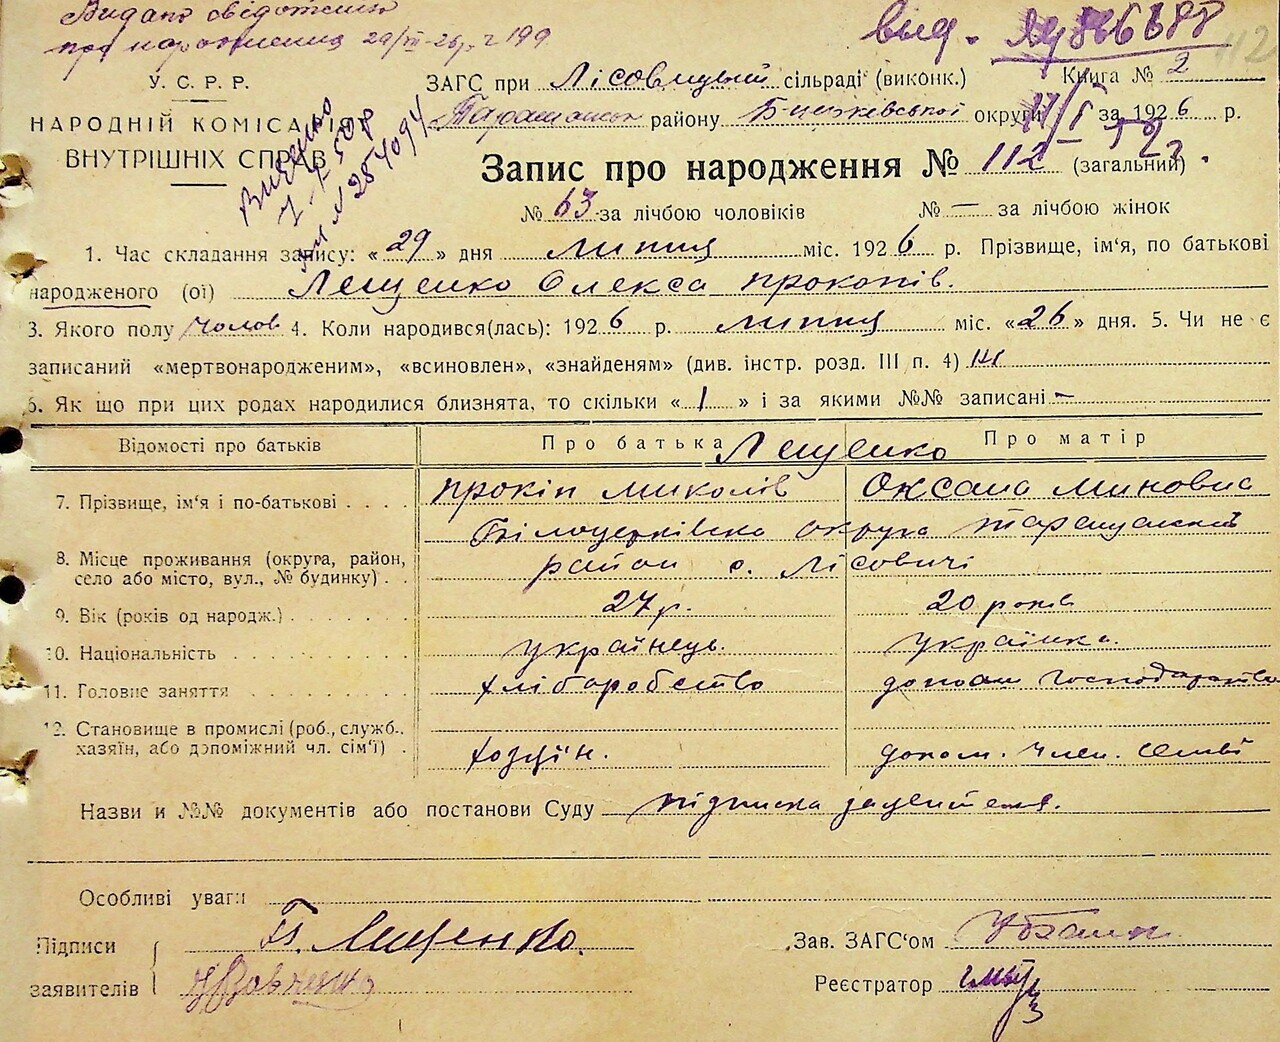 Видано свідоцтво
про народження 29/III-26р. № 199
вид. ЯЦ 866388
У.С.Р.Р.
НАРОДНІЙ КОМІСАРІЯТ
ВНУТРІШНІХ СПРАВ
Видано
7-I-50р
№ 2540941
ЗАГС при Лісовицькій сільраді (виконк.) Книга № 2
Таращанськ району Б-церківської округи за 1926 р.
17/I 52
Запис про народження № 112 (загальний)
№ 63 за лічбою чоловіків № — за лічбою жінок
1. Час складання запису: «29» дня липня міс. 1926 р. Прізвище, ім'я, по батькові
народженого (ої) Лещенко Олекса Прокопів.
3. Якого полу чолов 4. Коли народився(лась): 1926 р. липня міс. «26» дня. 5. Чи не є
записаний «мертвонародженим», «всиновлен», «знайденям» (див. інстр. розд. III п. 4) ні
6. Як що при цих родах народилися близнята, то скільки «1» і за якими №№ записані —
Відомості про батьків Про батька Про матір
Лещенко
7. Прізвище, ім'я і по-батькові . . . . Прокіп Миколів Оксана Миновна
Білоцерківська округа Таращанський
8. Місце проживання (округа, район,
село або місто, вул., № будинку) . . район с. Лісовичі
9. Вік (років од народж.) . . . . . . . 27 р. 20 років
10. Національність . . . . . . . . . . українець. українка.
11. Головне заняття . . . . . . . . . хліборобство допом господарства
12. Становище в промислі (роб., служб.,
хазяїн, або допоміжний чл. сім'ї) . хозяїн. допом. член. семьї
Назви и №№ документів або постанови Суду підписка заявителя.
Особливі уваги
Підписи П. Лещенко. Зав. ЗАГС'ом
заявителів Вовченко Реєстратор